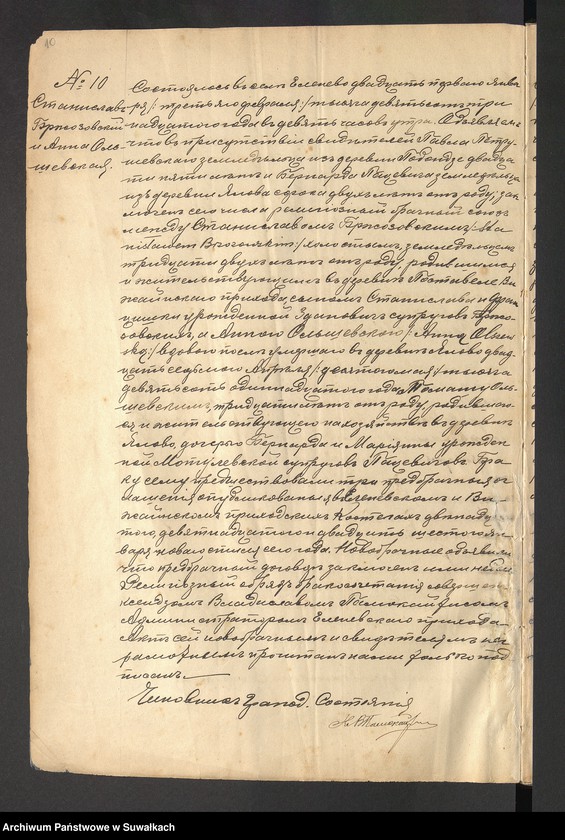 10
№ 10
Станиславъ
Бржозовскій
и Анна Оль-
шевская.
Состоялось въ селѣ Еленево двадцать перваго Янва-
ря /: третьяго февраля :/ тысяча девятьсотъ три-
надцатаго года въ девять часовъ утра. Объявляемъ
что въ присутствіи свидѣтелей Павла Петру-
шевскаго земледѣльца изъ деревни двадца-
ти пяти лѣтъ и Бернарда Пацевича земледѣльца
изъ деревни Ялово сорока двухъ лѣтъ отъ роду, за-
ключенъ сего числа религіозный брачный союзъ
между Станиславомъ Бржозовскимъ /: Sta
nisławem Brzozowskim :/ холостымъ, земледѣльцемъ
тридцати двухъ лѣтъ отъ роду, родившимся
и жительствующимъ въ деревнѣ Ви-
жайнскаго прихода, сыномъ Станислава и Фран-
цишки урожденной Здановичъ супруговъ Бржо-
зовскихъ, а Анною Ольшевскою /: Anną Olszew-
ską :/ вдовою послѣ умершаго въ деревнѣ Ялово двад-
цать седьмого Апрѣля /: десятого мая :/ тысяча
девятьсотъ одиннадцатаго года Ольо-
шевскимъ, тридцати лѣтъ отъ роду, родившею-
ся и жительствующею на хозяйствѣ въ деревнѣ
Ялово, дочерью Бернарда и Маріянны урожден-
ной Мотулевской супруговъ Пацевичовъ. Бра-
ку сему предшествовали три предбрачныя ог-
лашенія опубликованныя въ Еленевскомъ и Ви-
жайнскомъ приходскихъ Костелахъ двѣнадца-
таго, девятнадцатаго и двадцать шестого ян-
варя новаго стиля сего года. Новобрачные объявили
что предбрачный договоръ заключенъ ими не былъ.
Религіозный обрядъ бракосочетанія совершенъ
ксендзомъ Владиславомъ
Администраторомъ Еленевскаго прихода.
Актъ сей новобрачнымъ и свидѣтелямъ нег-
рамотнымъ прочитанъ нами только под-
писанъ.
Чиновникъ Гражд. Состоянія
Кс. В.
Archiwum Państwowe w Suwałkach